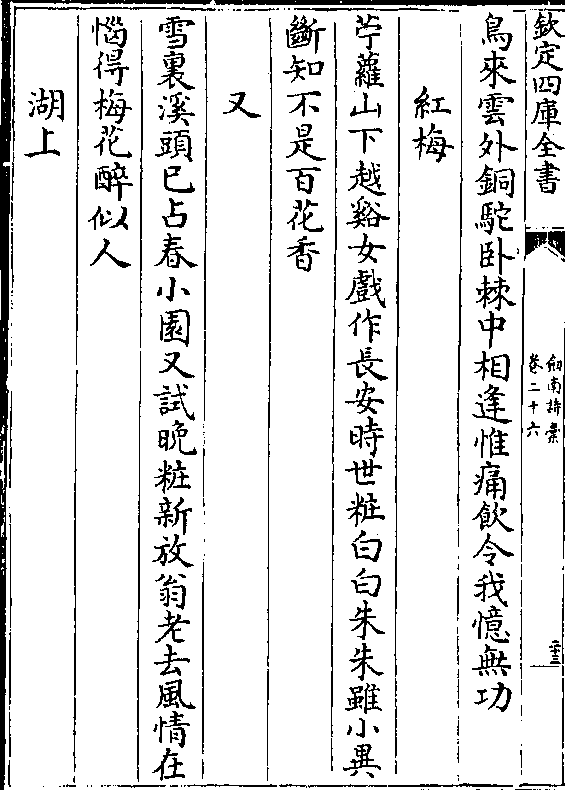 欽定四庫全書
劒南詩藁
卷二十六
鳥來雲外銅駝卧棘中相逢惟痛飲令我憶無功
紅梅
苧蘿山下越谿女戲作長安時世粧白白朱朱雖小異
斷知不是百花香
又
雪裏溪頭已占春小園又試晚粧新放翁老去風情在
惱得梅花醉似人
湖上